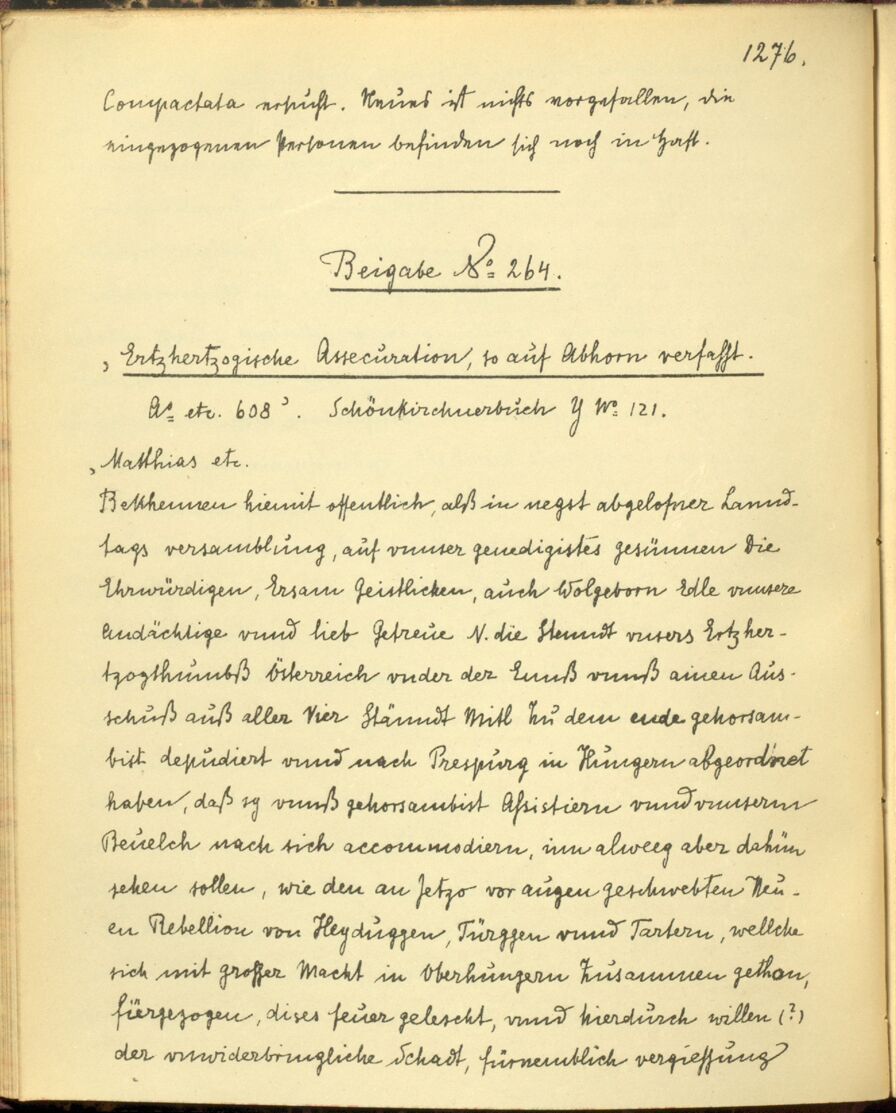 1276.
Compactata ersucht. Neues ist nichts vorgefallen, die
eingezogenen Personen befinden sich noch in Haft.
Beigabe No. 264.
„Ertzhertzogische Assecuration, so auf Abhorn verfasst.
Ao. etc. 608". Schönkirchnerbuch Y No. 121.
„Matthias etc.
Bekhennen hiemit offentlich, alß in negst abgelofner Lannd-
tags versamblung, auf vnnser genedigistes gesünnen Die
Ehrwürdigen, Ersam Geistlichen, auch Wolgeborn Edle vnnsere
andächtige vnnd lieb Getreue N. die Stenndt vnsers Ertzher-
tzogthumbß Österreich vnder der Ennß vnnß ainen Aus-
schuß auß aller Vier Stänndt Mitl Zu dem ende gehorsam-
bist depudiert vnnd nach Prespurg in Hungern abgeordnet
haben, daß sy vnnß gehorsambist Assistiern vnnd vnnserm
Beuelch nach sich accommodiern, inn alweeg aber dahün
sehen sollen, wie den an Jetzo vor augen geschwebten Neu-
en Rebellion von Heyduggen, Türggen vnnd Tartern, wellche
sich mit grosser Macht in Oberhungern Zusammen gethon,
fürgezogen, dises feuer gelescht, vnnd hierdurch willen (?)
der vnwiderbringliche Schadt, fürnemblich vergiessung